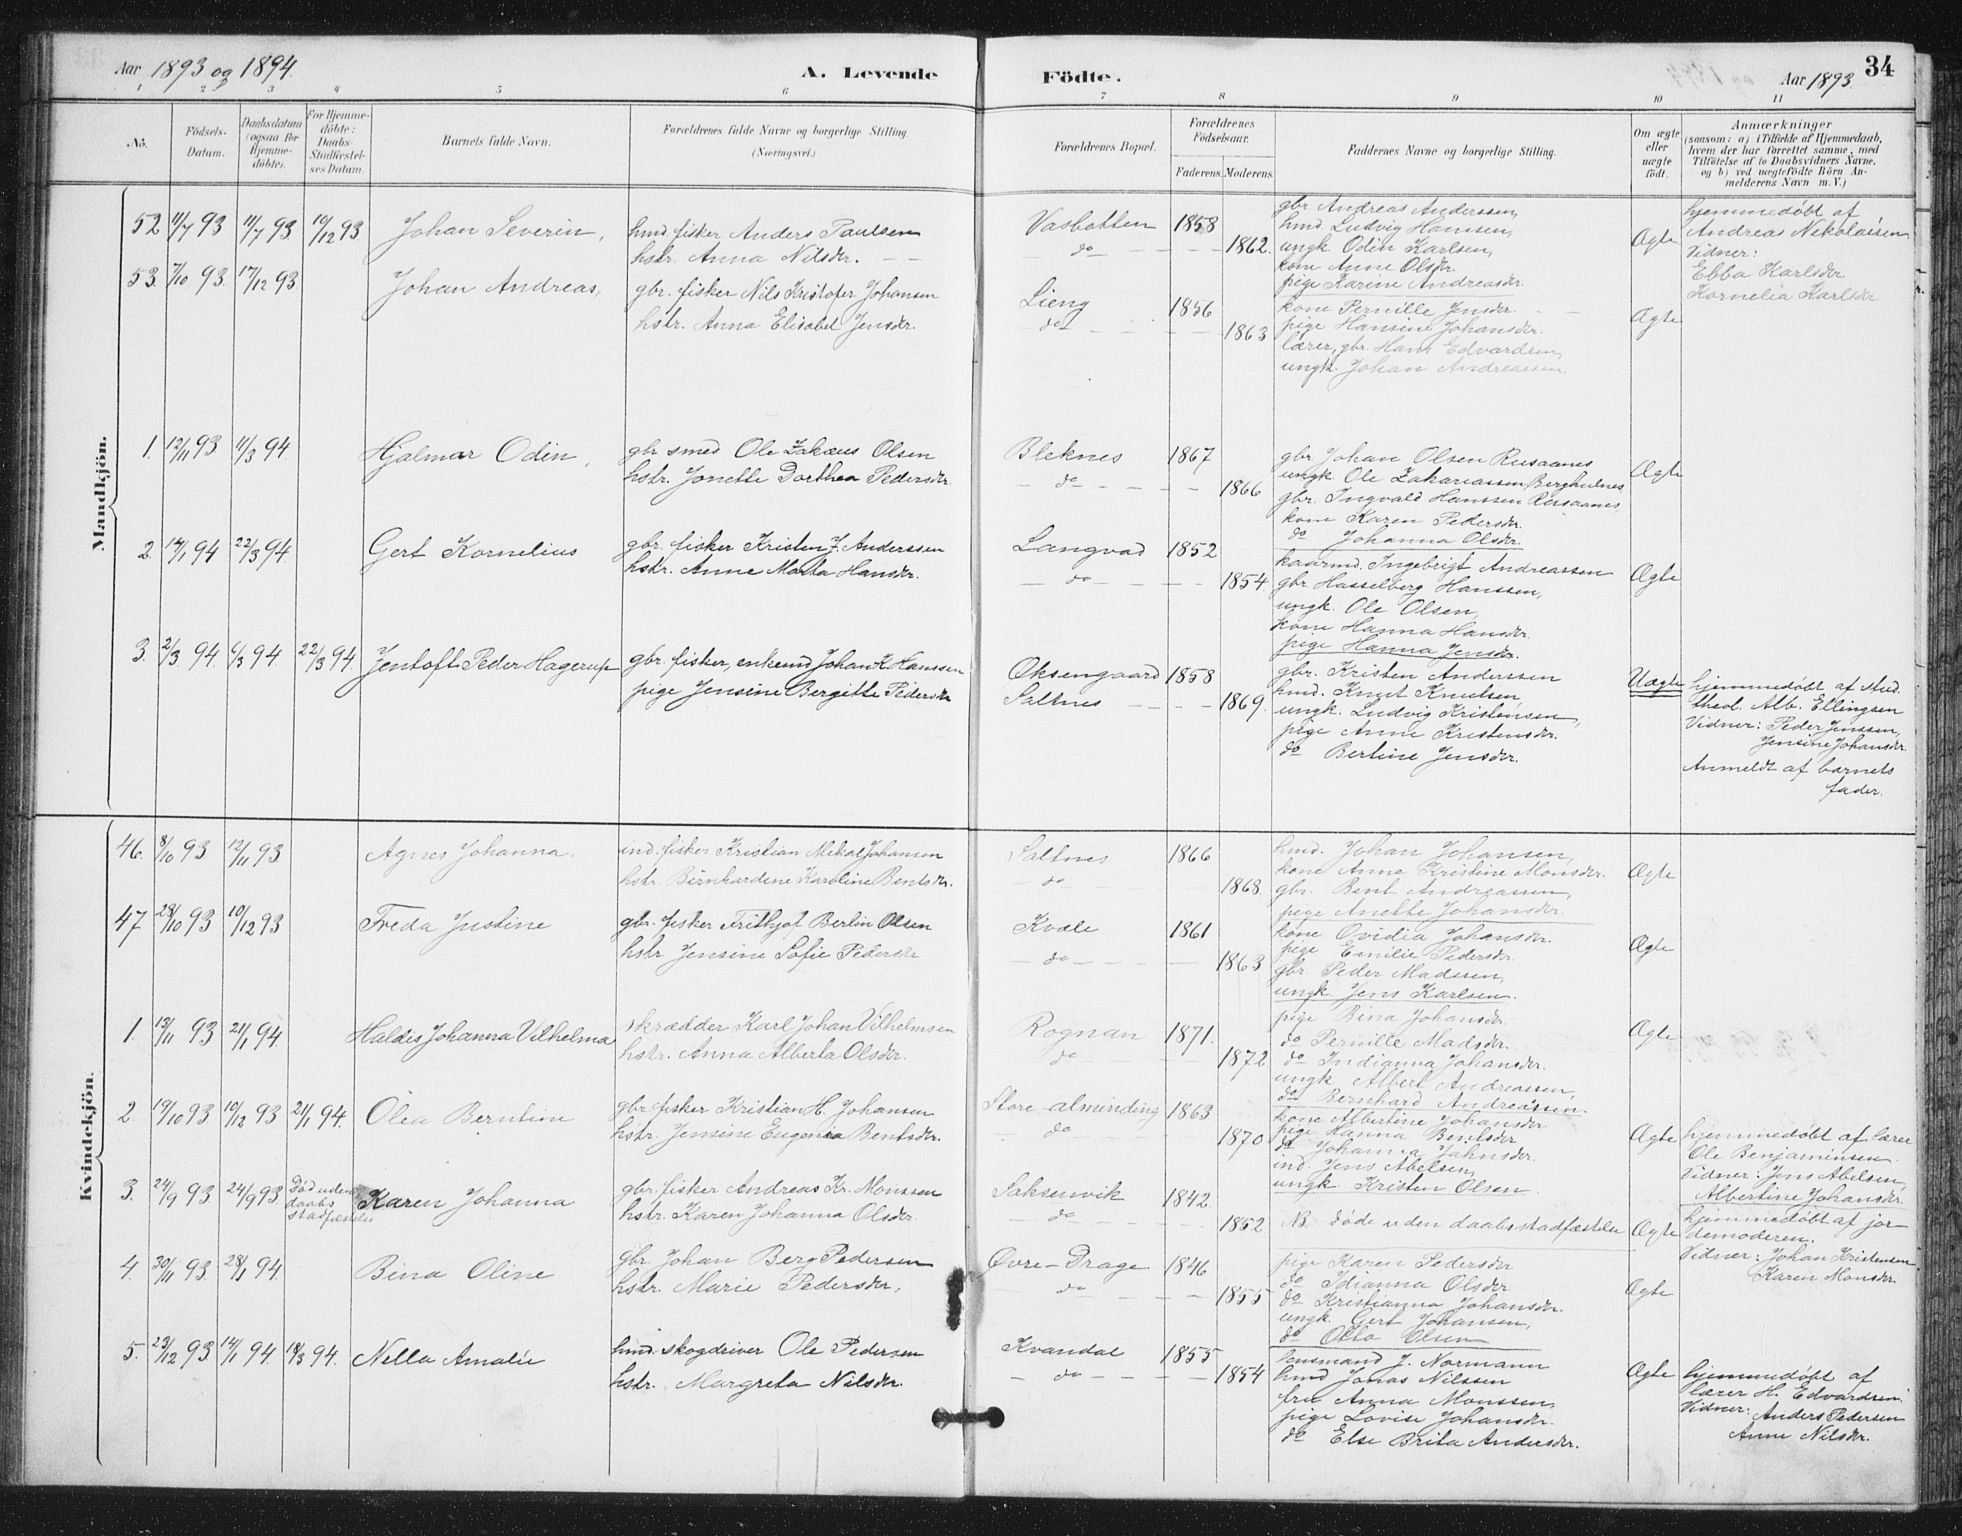 Aar 1893 og 1894.
A. Levende
Födte.
Aar 1893.
34
1 2 3 4 5 6 7 8 9 10 11
No.
Födsels-
Datum.
Daabsdatum
(ogsaa for
Hjemme-
döbte).
For Hjemme-
döbte:
Daabs-
Stadfæstel-
ses Datum.
Barnets fulde Navn.
Forældrenes fulde Navne og borgerlige Stilling.
(Næringsvei.)
Forældrenes Bopæl.
Forældrenes
Födselsaar.
Faderens. Moderens.
Faddernes Navne og borgerlige Stilling.
Om ægte
eller
uægte
födt.
Anmærkninger
(saasom: a) i Tilfælde af Hjemmedaab,
hvem der har forrettet samme, med
Tilföielse af to Daabsvidners Navne.
og b) ved uægtefödte Börn An-
melderens Navn m. V.)
Mandkjön.
52 11/7 93 11/7 93 10/12 93 Johan Severin,
hmd. fisker Anders Paulsen
hstr. Anna Nilsdr.
Vasbotten 1858
do 1862.
gbr Andreas Anderssen,
hmd Ludvig Hanssen,
ungk Odin Karlsen,
kone Anne Olsdr.
pige Karine Andreasdr.
Ægte
hjemmedøbt af
Andreas Nikolaisen
Vidner:
Ebba Karlsdr.
Kornelia Karlsdr.
53. 7/10 93. 17/12 93 Johan Andreas,
gbr. fisker Nils Kristofer Johansen
hstr. Anna Elisabet Jensdr.
Lieng 1856
do 1863
kone Pernille Jensdr.
pige Hansine Johansdr.
lærer, gbr. Hans Edvardsen,
ungk. Johan Andreassen.
Ægte
1. 12/11 93 11/3 94. Hjalmar Odin,
gbr smed Ole Zakæus Olsen
hstr. Jonette Dorthea Pedersdr.
Bleknes 1867
do 1866
gbr Johan Olsen Rusaanes
ungk Ole Zakariassen Berghulnes
gbr. Ingvald Hanssen Rusaanes
kone Karen Pedersdr.
do Johanna Olsdr.
Ægte
2. 14/1 94 22/3 94. Gert Kornelius
gbr. fisker Kristen J. Anderssen
hstr. Anne Marta Hansdr.
Langvad 1852
do 1854.
kaarmd. Ingebrigt Andreassen
gbr Hasselberg Hanssen,
ungk. Ole Olsen,
kone Hanna Hansdr.
pige Hanna Jensdr.
Ægte
3. 2/3 94. 6/3 94 22/3 94. Jentoft Peder Hagerup
gbr. fisker, enkemd Johan K. Hanssen
pige Jensine Bergitte Pedersdr
Øksengaard 1858
Saltnes 1869.
gbr. Kristen Anderssen
hmd. Knut Knutsen
ungk. Ludvig Kristensen,
pige Anne Kristensdr.
do Bertine Jensdr.
Uægte
hjemmedøbt af stud.
theol. Alb. Ellingsen
Vidner: Peder Jenssen,
Jensine Johansdr.
Anmeldt af barnets
fader.
Kvindekjön.
46. 8/10 93 12/11 93 Agnes Johanna.
ind. fisker Kristian Mikal Johansen
hstr. Bernhardene Karoline Bentsdr.
Saltnes 1866
do 1868.
hmd. Johan Johansen,
kone Anne Kristine Monsdr.
gbr. Bent Andreassen,
pige Anette Johansdr.
Ægte
47 28/10 93 10/12 93 Freda Justine
gbr. fisker Frithjof Berlin Olsen
hstr Jensine Sofie Pedersdr
Kvæle 1861
do 1863
kone Ovidia Johansdr.
pige Emilie Pedersdr.
gbr. Peder Madssen,
ungk. Jens Karlsen.
Ægte
1. 13/11 93 21/1 94. Haldis Johanna Vilhelma
skrædder Karl Johan Vilhelmsen
hstr. Anna Alberta Olsdr.
Rognan 1871.
do 1872
pige Bina Johansdr.
do Pernille Madsdr.
do Indianna Johansdr.
ungk. Albert Andreassen,
do Bernhard Andreassen.
Ægte
2. 19/10 93 10/12 93 21/1 94. Olea Berntine
gbr. fisker Kristian H. Johansen
hstr. Jensine Eugenia Bentsdr.
Store-alminding 1863
do 1870
kone Albertine Johansdr
pige Hanna Bentsdr
do Johanna Jahnsdr.
ind. Jens Abelsen,
ungk Kristen Olsen.
Ægte
hjemmedøbt af lærer
Ole Benjaminsen.
Vidner: Jens Abelsen,
Albertine Johansdr.
3. 24/9 93 24/9 93 Død uden
daabs
stadfæstelse
Karen Johanna
gbr. fisker Andreas Kr. Monssen
hstr. Karen Johanna Olsdr.
Saksenvik 1842
do 1852.
NB. døde uden daabsstadfæstelse
Ægte
hjemmedøbt af jor-
demoderen.
Vidner: Johan Kristensen
Karen Monsdr.
4. 30/11 93. 28/1 94. Bina Oline
gbr. Johan Berg Pedersen
hstr. Marie Pedersdr.
Øvre-Drage 1846
do 1855
pige Karen Pedersdr
do Idianna Olsdr
do Kristianna Johansdr.
ungk. Gert Johansen,
do Otto Olsen
Ægte
5. 23/12 93 14/1 94. 18/3 94. Nella Amalie
hmd. skogdriver Ole Pedersen
hstr. Margreta Nilsdr.
Kvandal 1855
do 1854
lensmand J. Normann
hmd Jonas Nilssen
fru Anna Monssen,
pige Lovise Johansdr.
do Else Brita Andersdr.
Ægte
hjemmedøbt af
lærer H. Edvardsen.
Vidner: Anders Pedersen
Anne Nilsdr.